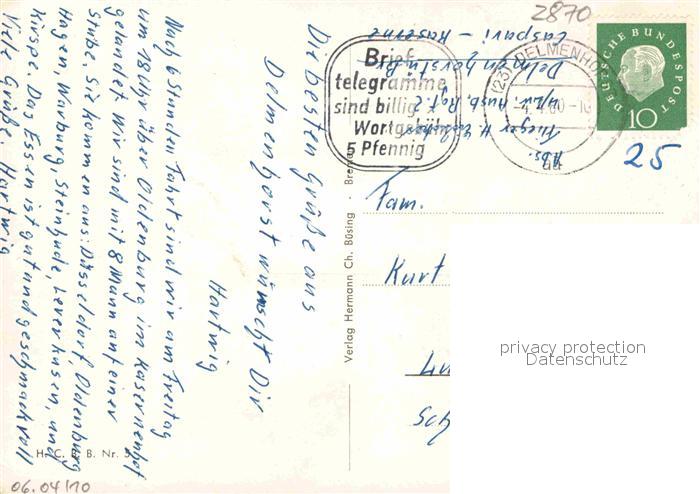 Die besten Grüße aus
Delmenhorst wünscht Dir
Hartwig
Nach 6 Stunden Fahrt sind wir am Freitag
um 18 Uhr über Oldenburg im Kasernenhof
gelandet. Wir sind mit 8 Mann auf einer
Stube. Sie kommen aus: Düsseldorf, Oldenburg
Hagen, Marburg, Steinhude, Leverkusen, und
Kirspe. Das Essen ist gut und geschmackvoll
Viele Grüße. Hartwig
H. C. B. B. Nr. 5
06.04/10
Verlag Hermann Ch. Büsing · Bremen
2870
Brief
telegramme
sind billig
Wortgebühr
5 Pfennig
(23) DELMENHO
DEUTSCHE BUNDESPOST
10
25
Abs.
Flieger H.
Ausb. Rgt. 2
Delmenhorst
Caspari - Kaserne
Fam.
Kurt
privacy protection
Datenschutz